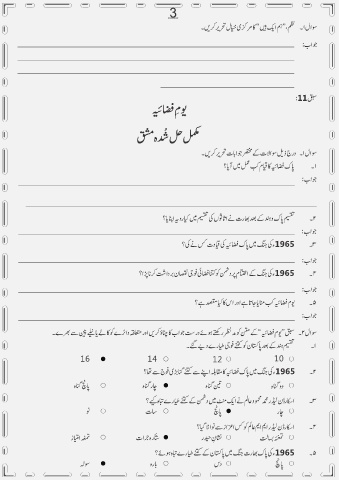 3
سوال۱۔ نظم، "ہم ایک ہیں" کا مرکزی خیال تحریر کریں۔
جواب:
سبق 11:
یومِ فضائیہ
مکمل حل شُدہ مشق
سوال۱۔ درج ذیل سوالات کے مختصر جوابات تحریر کریں۔
۱۔ پاک فضائیہ کا قیام کب عمل میں آیا؟
جواب:
۲۔ تقسیم پاک و ہند کے بعد بھارت نے اثاثوں کی تقسیم میں کیا رویہ اپنایا؟
جواب:
۳۔ 1965ء کی جنگ میں پاک فضائیہ کی قیادت کس نے کی؟
جواب:
۴۔ 1965ء کی جنگ کے اختتام پر دشمن کو کتنا فضائی فوجی نقصان برداشت کرنا پڑا؟
جواب:
۵۔ یوم فضائیہ کب منایا جاتا ہے اور اس کا کیا مقصد ہے؟
جواب:
سوال۲۔ سبق "یومِ فضائیہ" کے متن کو مدِ نظر رکھتے ہوئے درست جواب کا چناؤ کریں اور متعلقہ دائرے کو کالے یا نیلے پین سے بھریے۔
۱۔ تقسیم ہند کے بعد پاکستان کو کتنے فوجی طیارے دیے گئے۔
10 12 14 16
۲۔ 1965ء کی جنگ میں پاک فضائیہ کا مقابلہ اپنے سے کتنے گنا بڑی فوج سے تھا؟
دو گناہ تین گناہ چار گناہ پانچ گناہ
۳۔ اسکاڈرن لیڈر محمد محمود عالم نے ایک منٹ میں دشمن کے کتنے طیارے تباہ کیے؟
چار پانچ سات نو
۴۔ اسکاڈرن لیڈر ایم ایم عالم کو کس اعزاز سے نوازا گیا؟
تمغۂ بسالت نشانِ حیدر ستارۂ جرات تمغہ امتیاز
۵۔ 1965ء کی پاک بھارت جنگ میں پاکستان کے کتنے طیارے تباہ ہوئے؟
پانچ دس بارہ سولہ